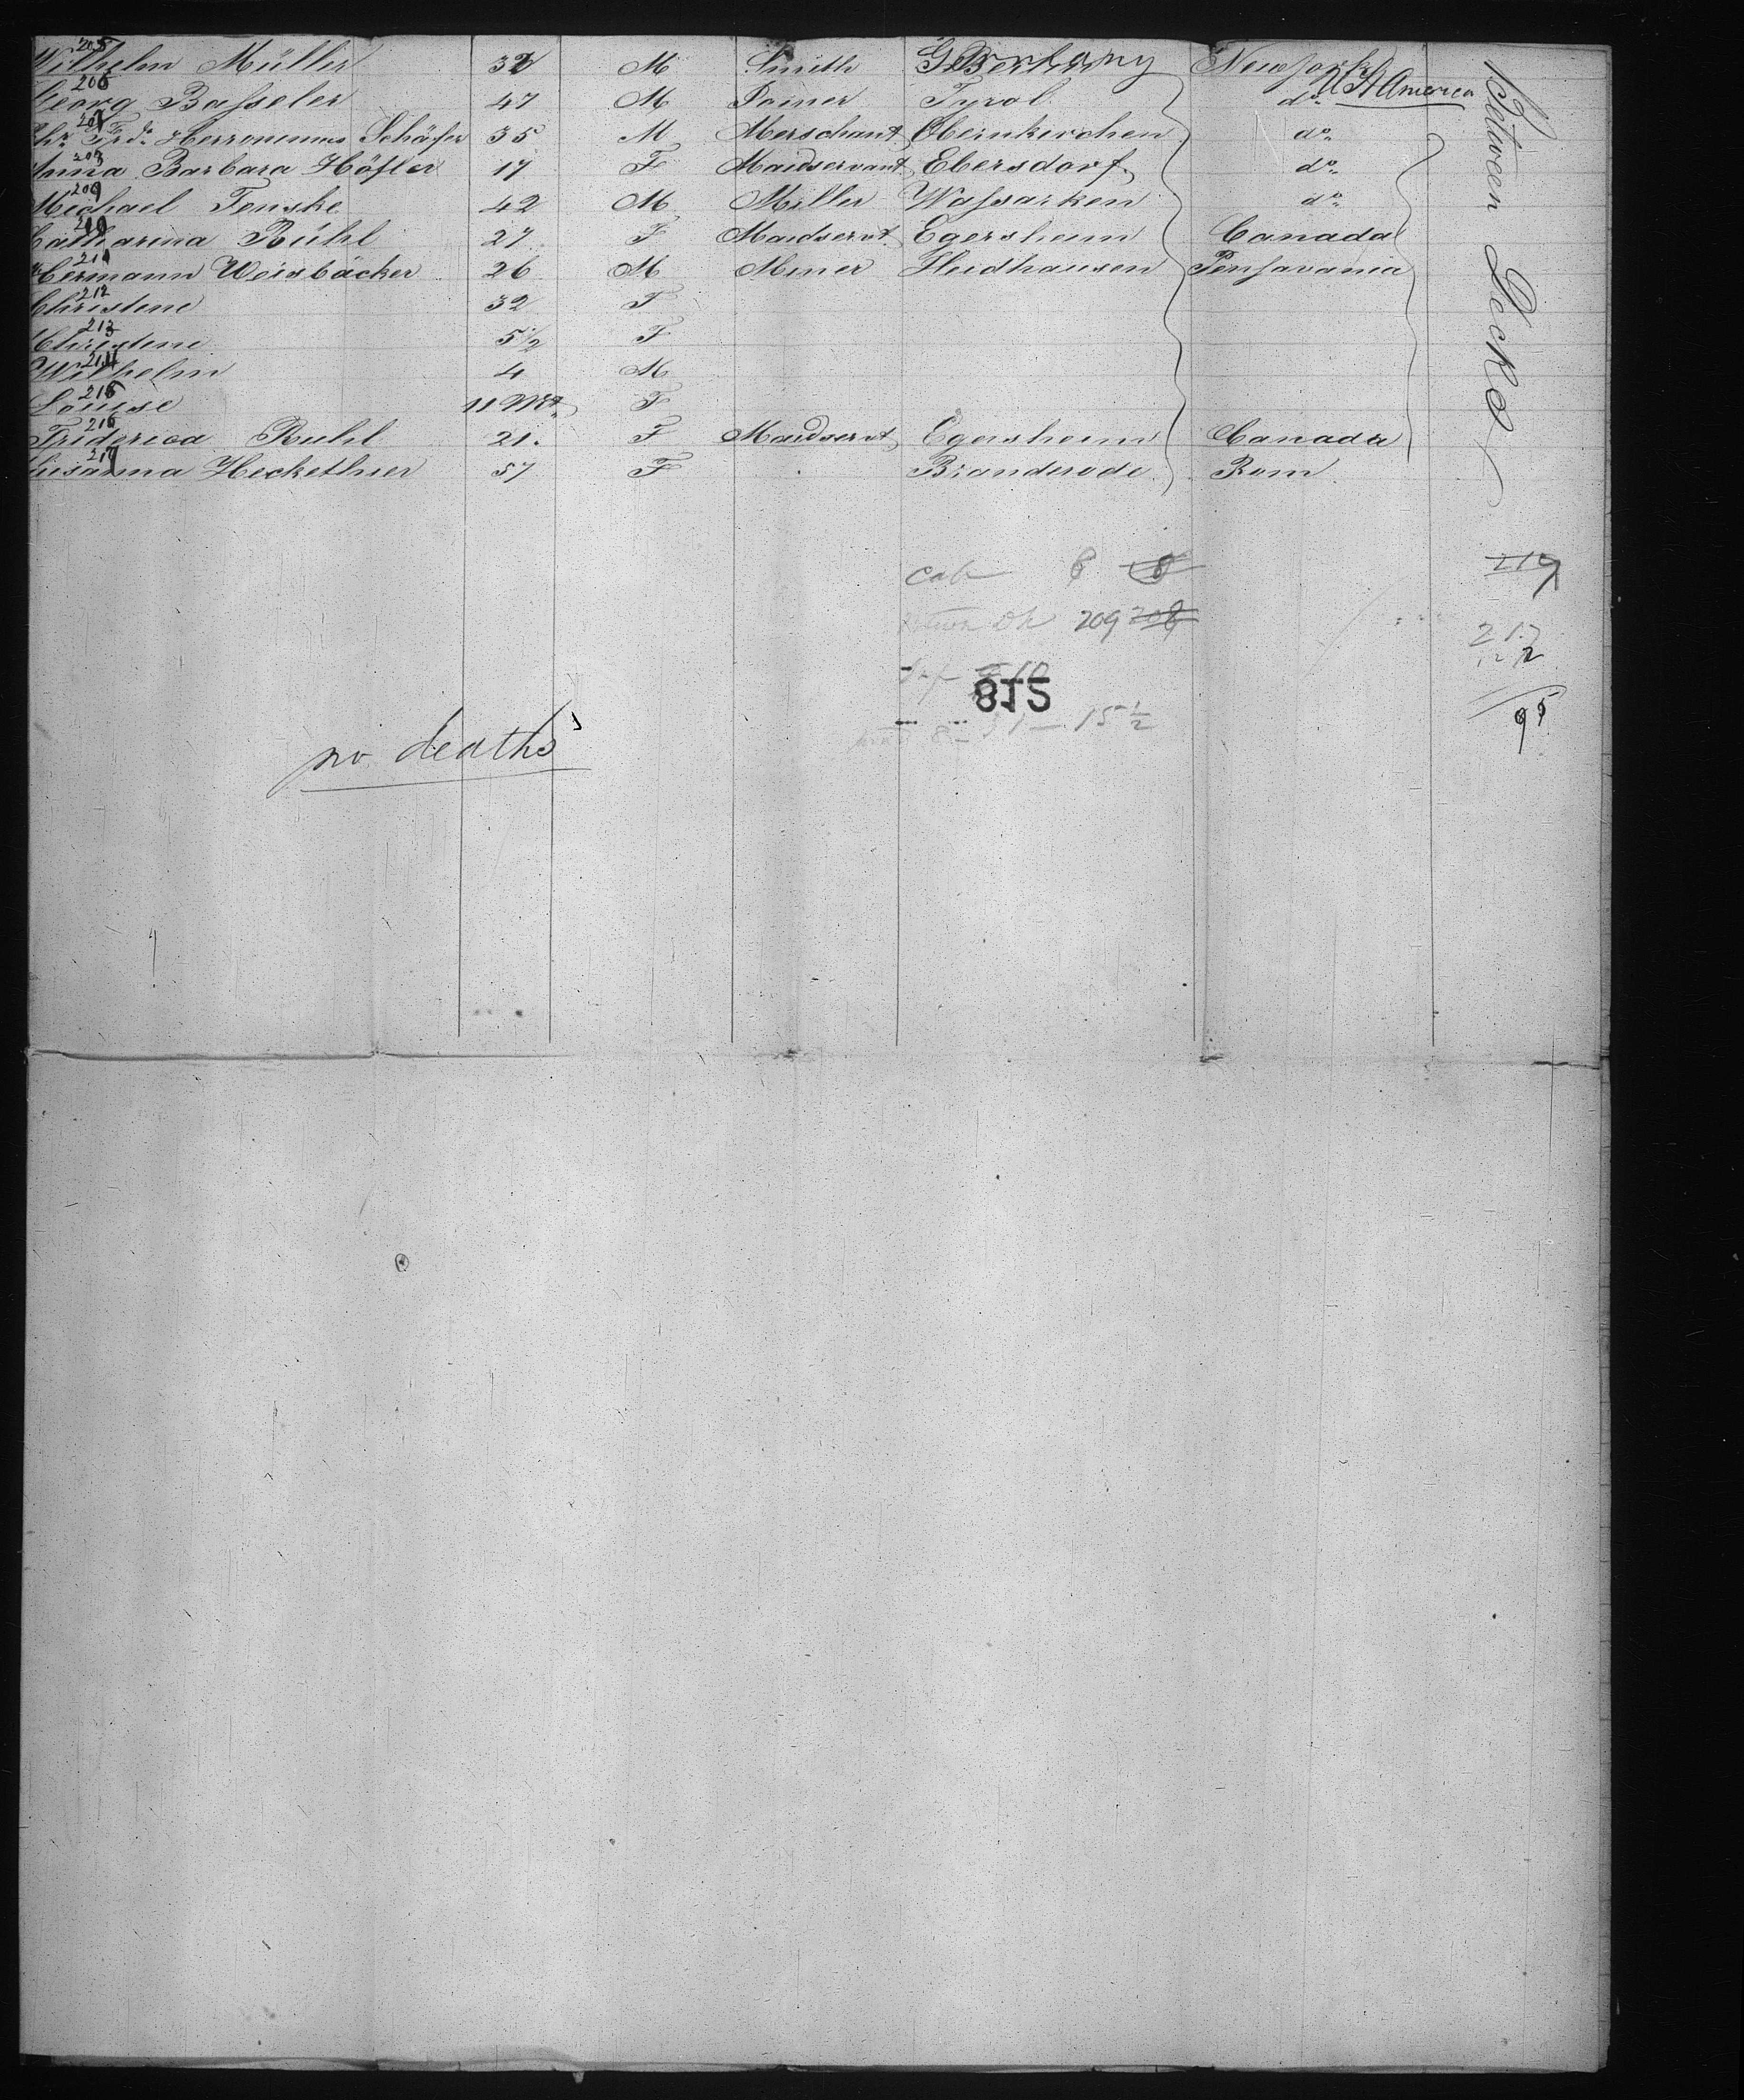 205 Wilhelm Müller 32 M Smith Berlin Germany New York U St America
206 Georg Basseler 47 M Joiner Tyrol do
207 Chr Frd. Herronemus Schäfer 35 M Merschant Obernkirchen do
208 Anna Barbara Höfler 17 F Maidservant Ebersdorf do
209 Michael Fenske 42 M Miller Wassarken do
210 Catharina Rühl 27 F Maidservt Egersheim Canada
211 Hermann Weisbäcker 26 M Miner Heidhausen Pensavania
212 Christene 32 F
213 Christene 5 1/2 F
214 Wilhelm 4 M
215 Louise 11 Mts F
216 Friderica Ruhl 21. F Maidservt Egersheim Canada
217 Susanna Heckethier 57 F Branderode Rom
Between Decks
219
cab 8 8
209 208
217
2
95
8T5
15 1/2
no deaths